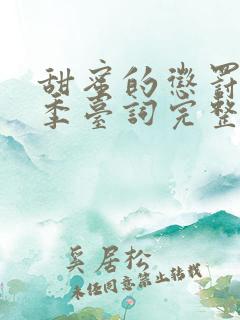 甜蜜的懲罰
季臺詞完整
奚居松
未经同意禁止转载